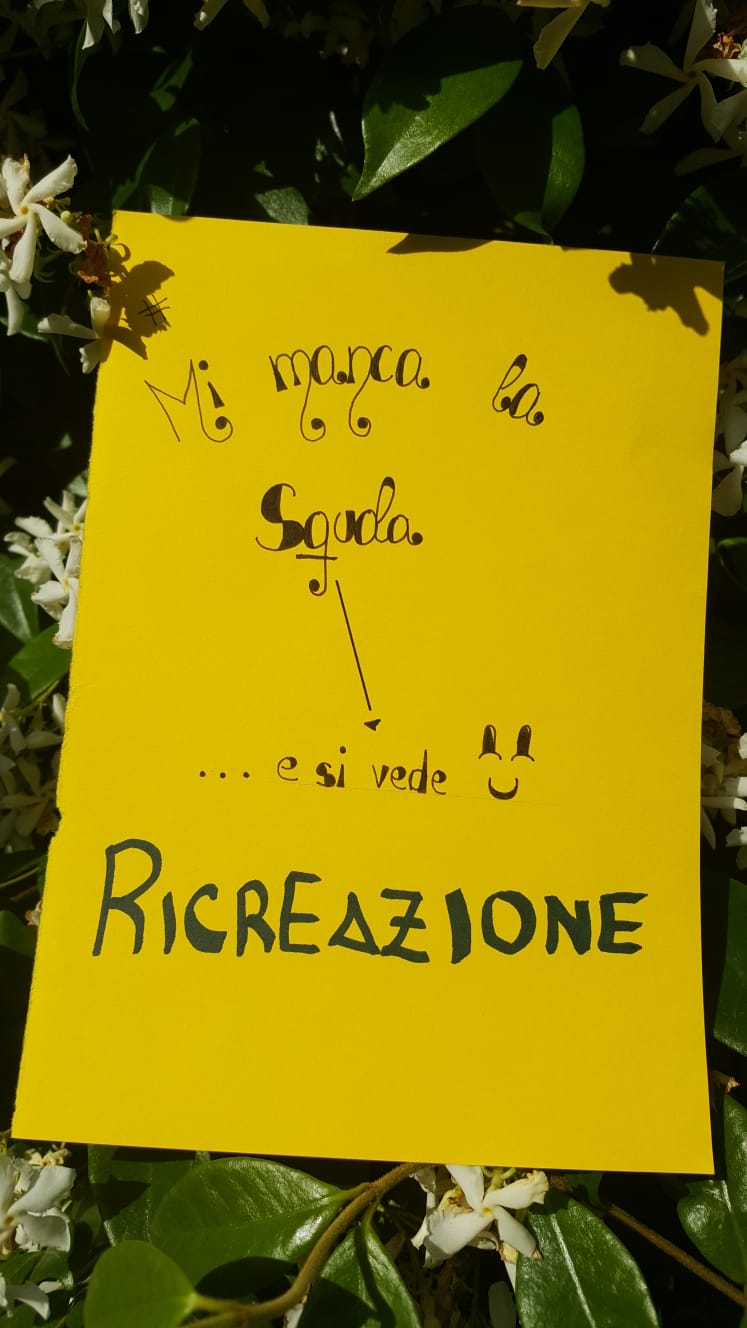 #
Mi manca la
Squola
... e si vede
RICREAZIONE